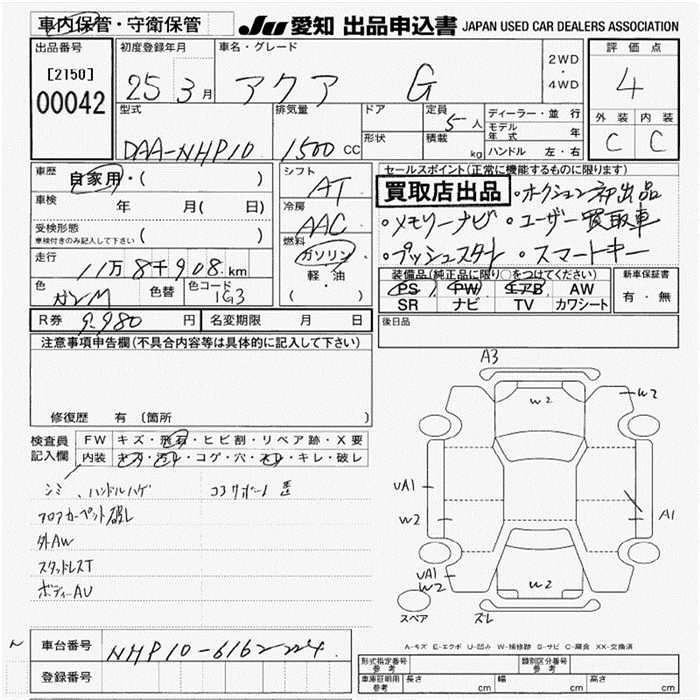 車内保管・守衛保管
JU 愛知 出品申込書 JAPAN USED CAR DEALERS ASSOCIATION
出品番号
[2150]
00042
初度登録年月
25 3月
車名・グレード
アクア G
2WD
・
4WD
評価点
4
外装 内装
C C
型式
DAA-NHP10
排気量
1500 CC
ドア
形状
定員
5人
積載
kg
ディーラー・並行
モデル年式 年
ハンドル 左・右
車歴 自家用・( )
車検 年 月( 日)
受検形態
車検付きのみ記入して下さい ( )
走行 11万8千908km
色 ガンM 色替 色コード 1G3
シフト
AT
冷房
AAC
燃料
ガソリン
軽・油
( )
セールスポイント(正常に機能するものに限る)
買取店出品 ・オークション初出品
・メモリーナビ ・ユーザー買取車
・プッシュスタート ・スマートキー
装備品(純正品に限り○をつけてください)
PS PW エアB AW
SR ナビ TV カワシート
新車保証書
有・無
後日品
R券 9,980円 名変期限 月 日
注意事項申告欄(不具合内容等は具体的に記入して下さい)
修復歴 有 (箇所 )
検査員記入欄
FW キズ・飛石・ヒビ割・リペア跡・X要
内装 キズ・汚れ・コゲ・穴・スレ・キレ・破レ
シミ、ハンドルハゲ
フロアカーペット破レ
外AW
スタッドレスT
ボディーAU
A3
W2
W2
UA1
W2
A1
UA1
W2
W2
スペア
ズレ
A-キズ E-エクボ U-凹み W-補修跡 S-サビ C-腐食 XX-交換済
車台番号 NHP10-6162224
登録番号
形式指定番号
参考
類別区分番号
参考
車庫証明用
参考
長さ cm 幅 cm 高さ cm